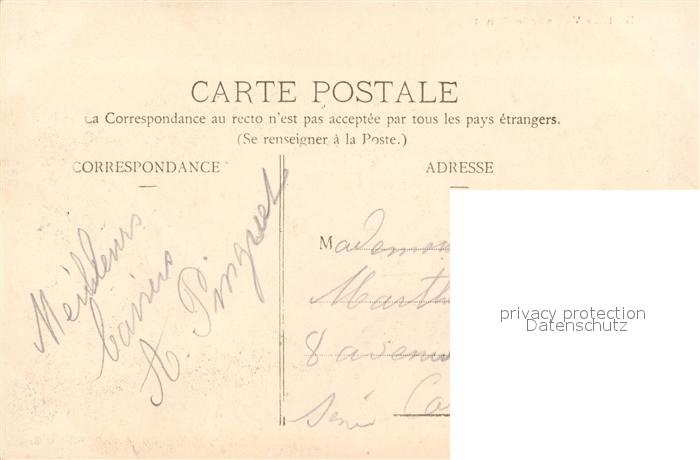 CARTE POSTALE
La Correspondance au recto n'est pas acceptée par tous les pays étrangers.
(Se renseigner à la Poste.)
CORRESPONDANCE
Meilleurs
baisers
A. Pinguet
ADRESSE
Mademois
Marth
8 avenu
privacy protection
Datenschutz